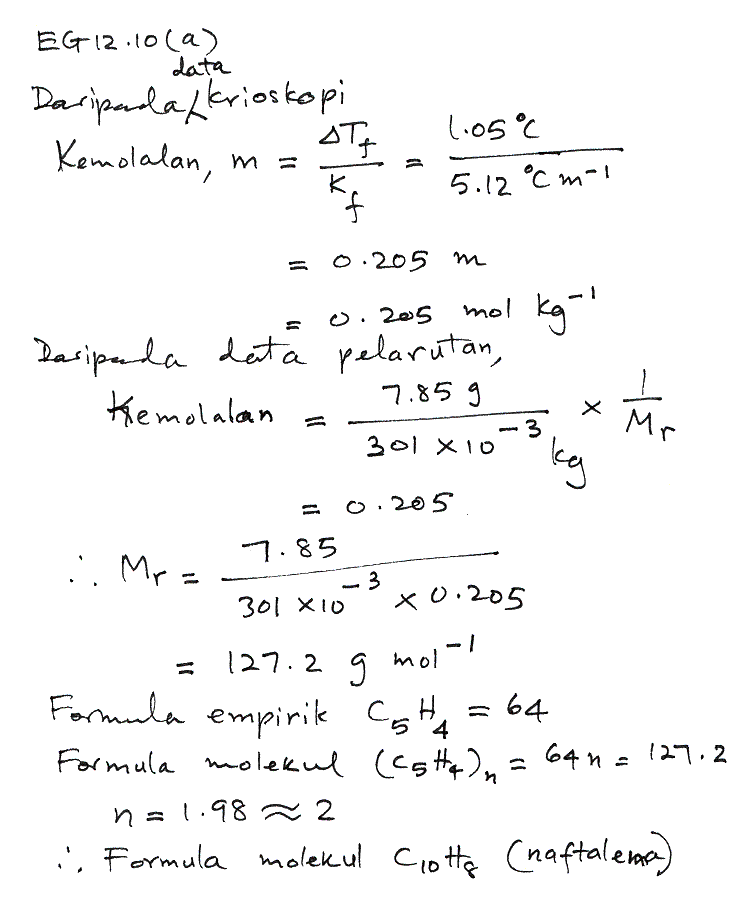 EG 12.10 (a)
Daripada data krioskopi
Kemolalan, m = ΔTf / Kf = 1.05 °C / 5.12 °C m-1
= 0.205 m
= 0.205 mol kg-1
Daripada data pelarutan,
Kemolalan = 7.85 g / 301 × 10-3 kg × 1 / Mr
= 0.205
∴ Mr = 7.85 / 301 × 10-3 × 0.205
= 127.2 g mol-1
Formula empirik C5H4 = 64
Formula molekul (C5H4)n = 64n = 127.2
n = 1.98 ≈ 2
∴ Formula molekul C10H8 (naftalena)